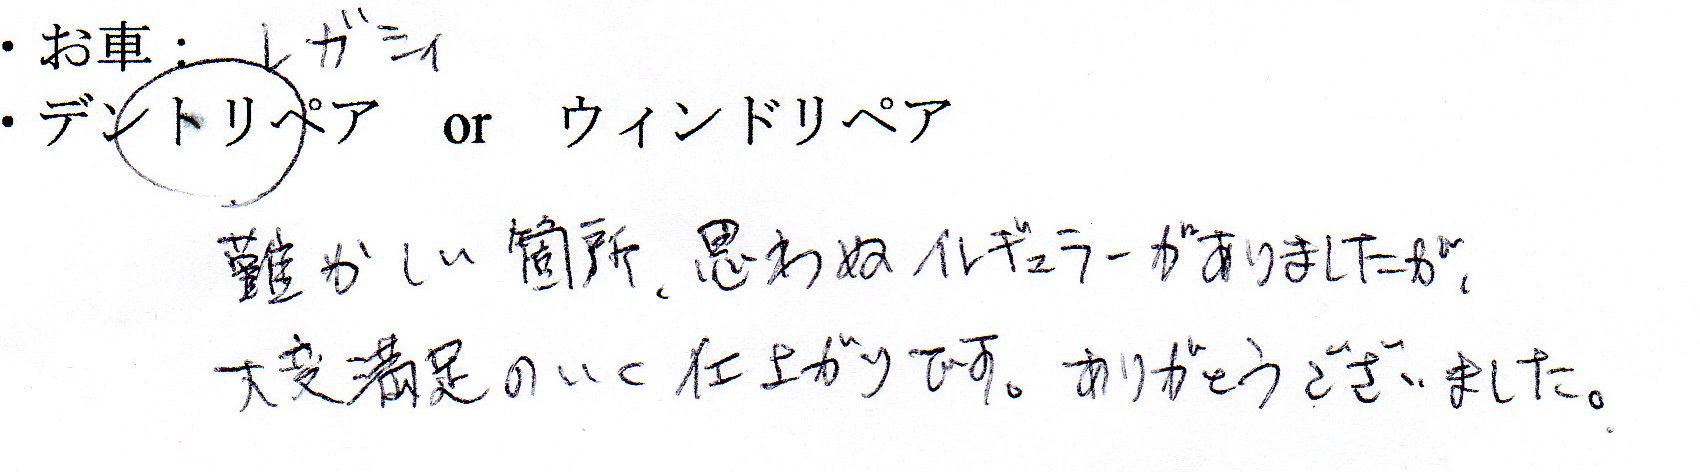 ・お車： レガシィ
・デントリペア or ウィンドリペア
難かしい箇所、思わぬイレギュラーがありましたが、
大変満足のいく仕上がりです。ありがとうございました。